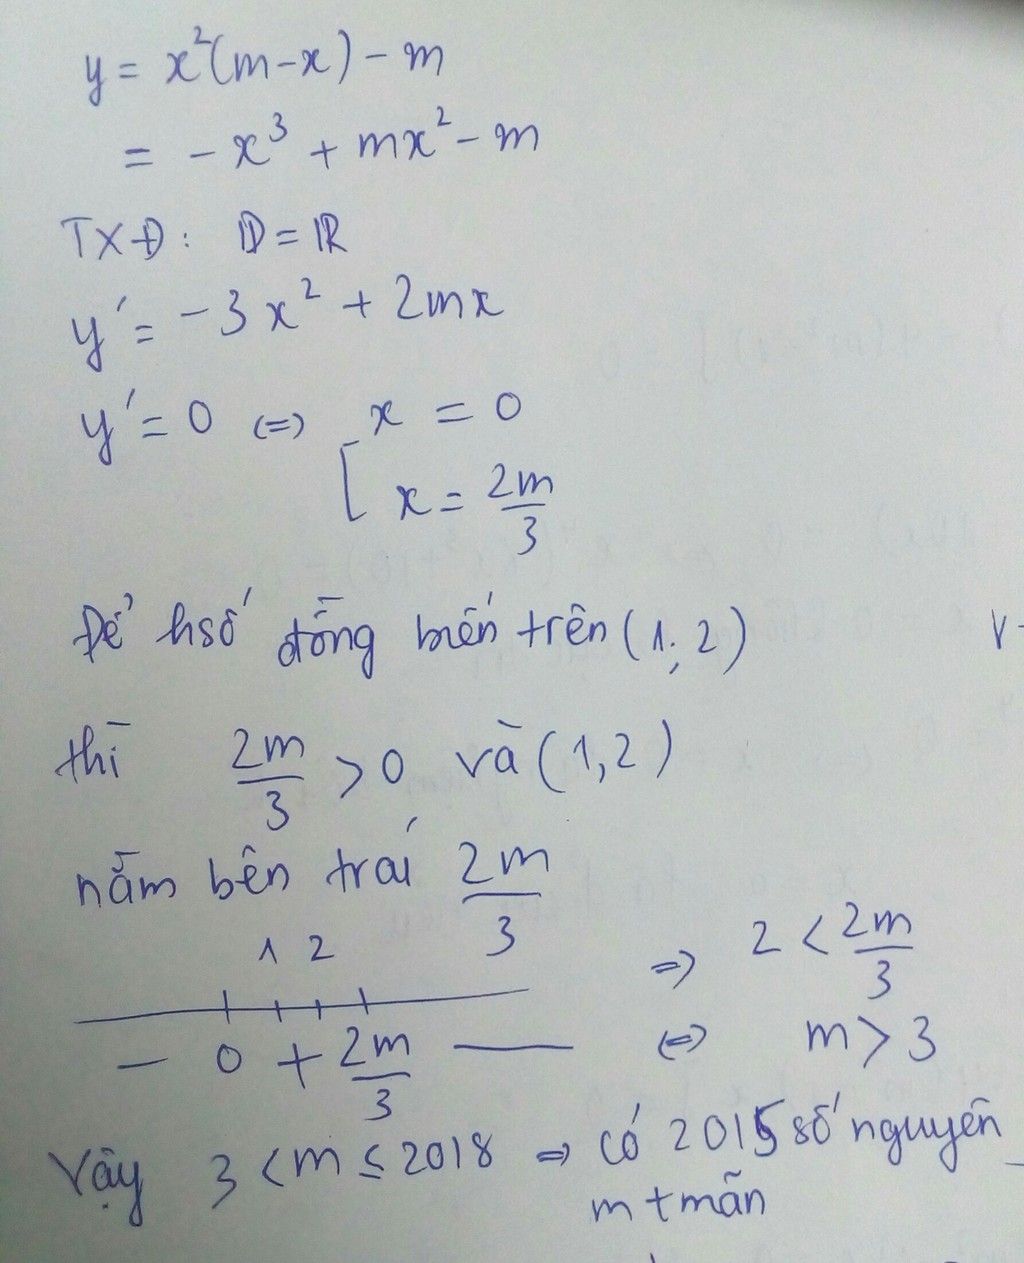 y = x²(m-x) - m
= -x³ + mx² - m
TXĐ: D = ℝ
y' = -3x² + 2mx
y' = 0 (=) [ x = 0
x = 2m/3
Để hsố đồng biến trên (1; 2)
thì 2m/3 > 0 và (1,2)
nằm bên trái 2m/3
1 2
=> 2 < 2m/3
- 0 + 2m/3 —
(=) m > 3
Vậy 3 < m ≤ 2018 => có 2015 số nguyên
m tmãn